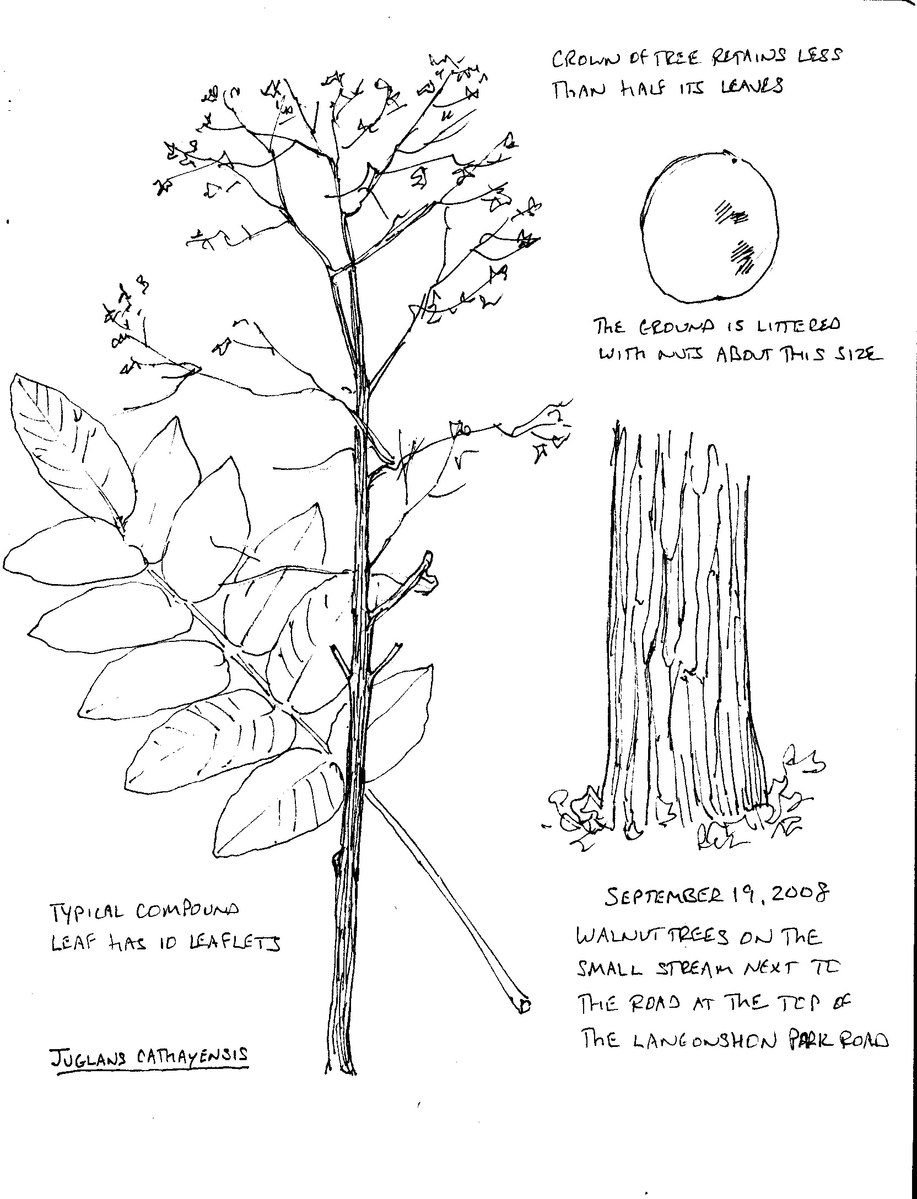 CROWN OF TREE RETAINS LESS
THAN HALF ITS LEAVES
THE GROUND IS LITTERED
WITH NUTS ABOUT THIS SIZE
TYPICAL COMPOUND
LEAF HAS 10 LEAFLETS
JUGLANS CATHAYENSIS
SEPTEMBER 19, 2008
WALNUT TREES ON THE
SMALL STREAM NEXT TO
THE ROAD AT THE TOP OF
THE LANGONSHON PARK ROAD